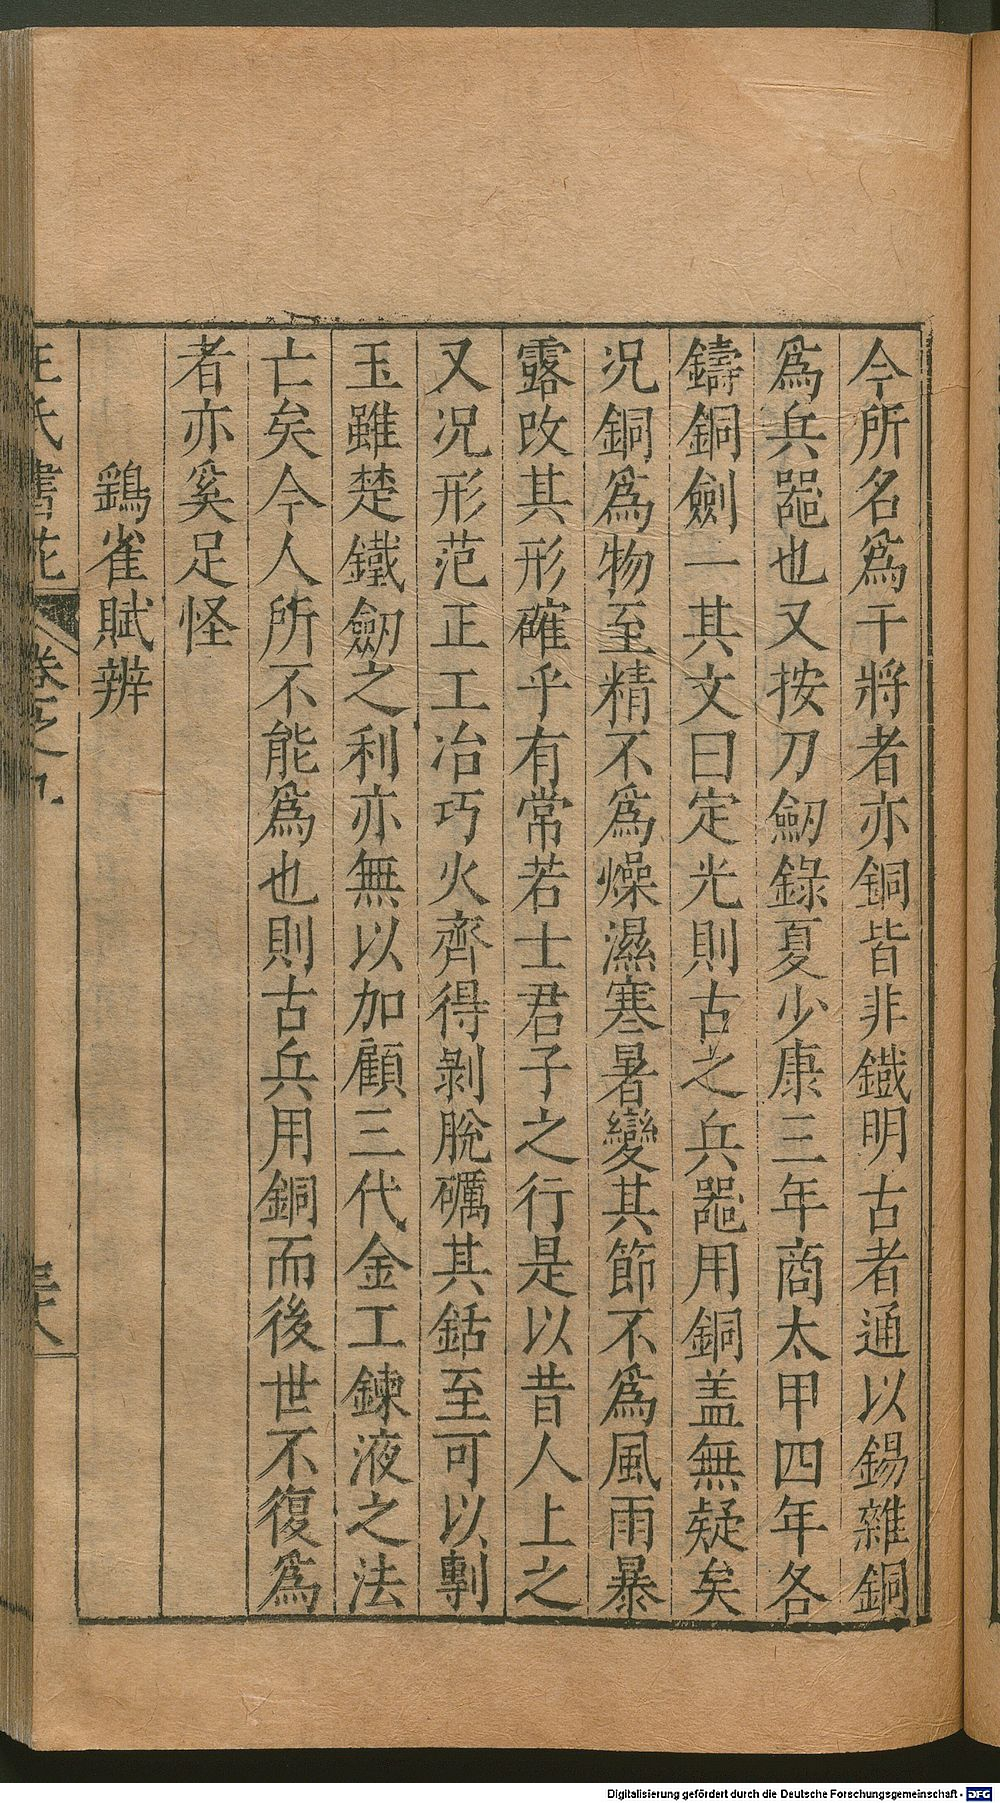 今所名爲干將者亦銅皆非鐵明古者通以錫雜銅
爲兵噐也又按刀劒錄夏少康三年商太甲四年各
鑄銅劍一其文曰定光則古之兵噐用銅盖無疑矣
况銅爲物至精不爲燥濕寒暑變其節不爲風雨暴
露改其形確乎有常若士君子之行是以昔人上之
又况形范正工冶巧火齊得剝脫礪其銛至可以剸
玉雖楚鐵劒之利亦無以加顧三代金工鍊液之法
亡矣今人所不能爲也則古兵用銅而後世不復爲
者亦奚足怪
鶡雀賦辨
氏 卷之九
Digitalisierung gefördert durch die Deutsche Forschungsgemeinschaft - DFG